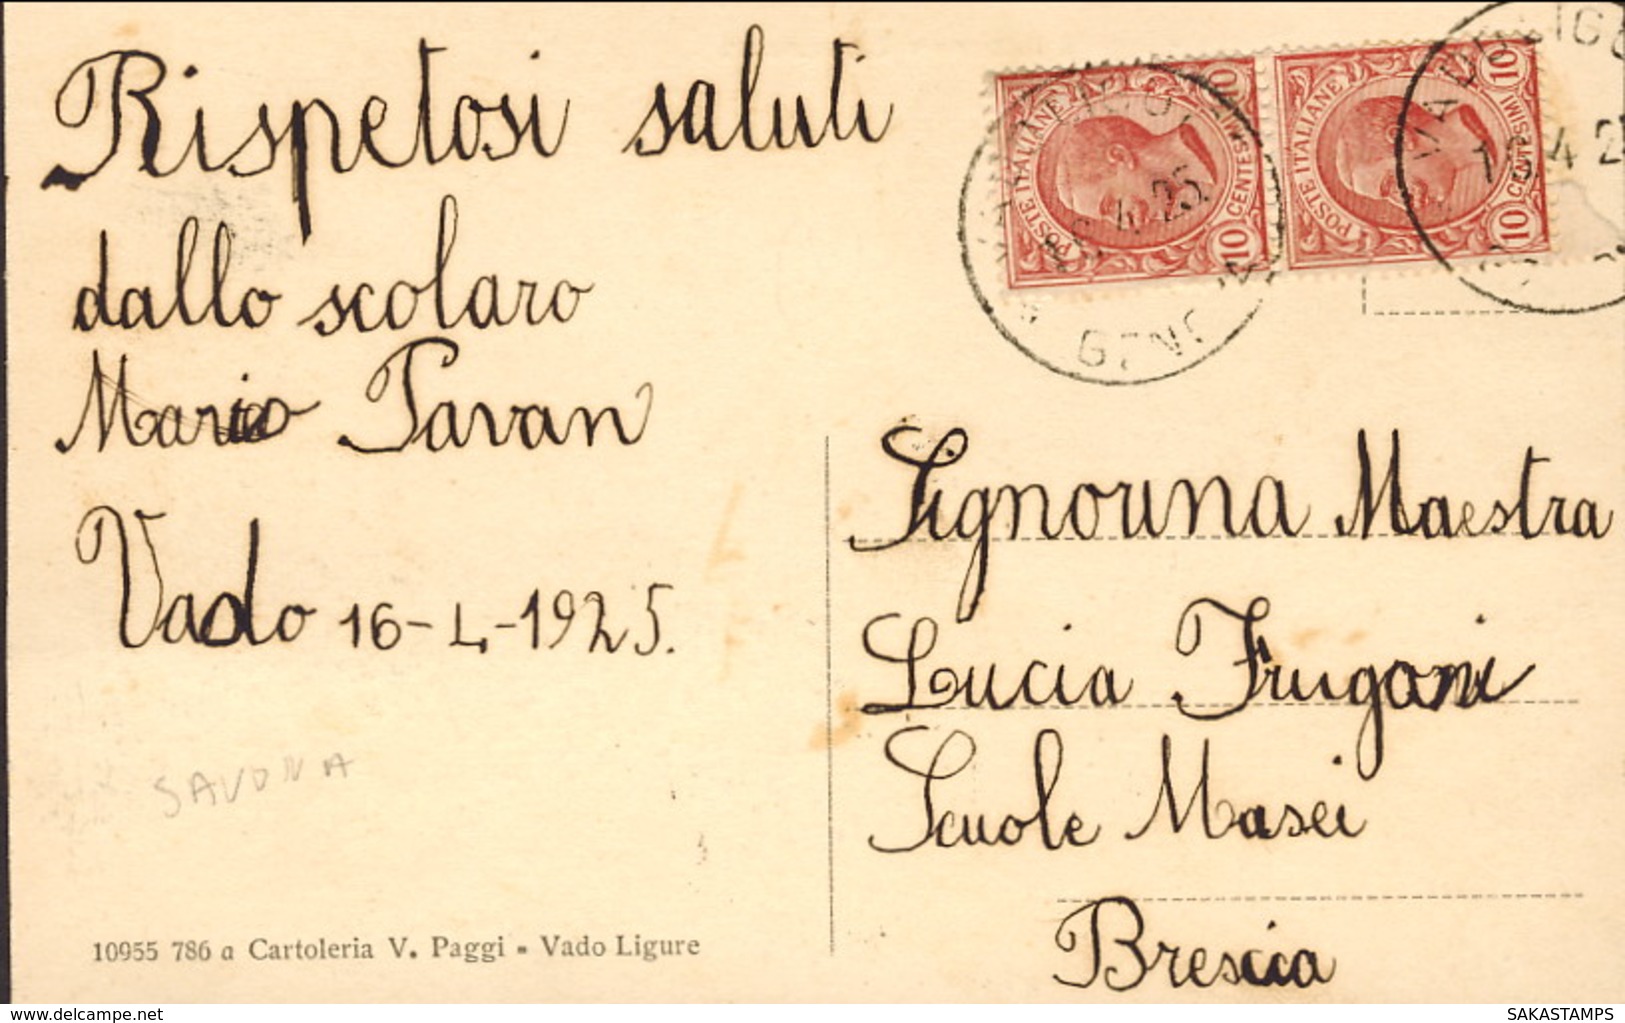 Rispetosi saluti
dallo scolaro
Mario Pavan
Vado 16-4-1925.
SAVONA
10953 786 a Cartoleria V. Paggi - Vado Ligure
POSTE ITALIANE
10 CENTESIMI 10
POSTE ITALIANE
10 CENTESIMI 10
4 25
VADO LIGU
16 4 2
Signorina Maestra
Lucia Frugoni
Scuole Masei
Brescia
www.delcampe.net
SAKASTAMPS